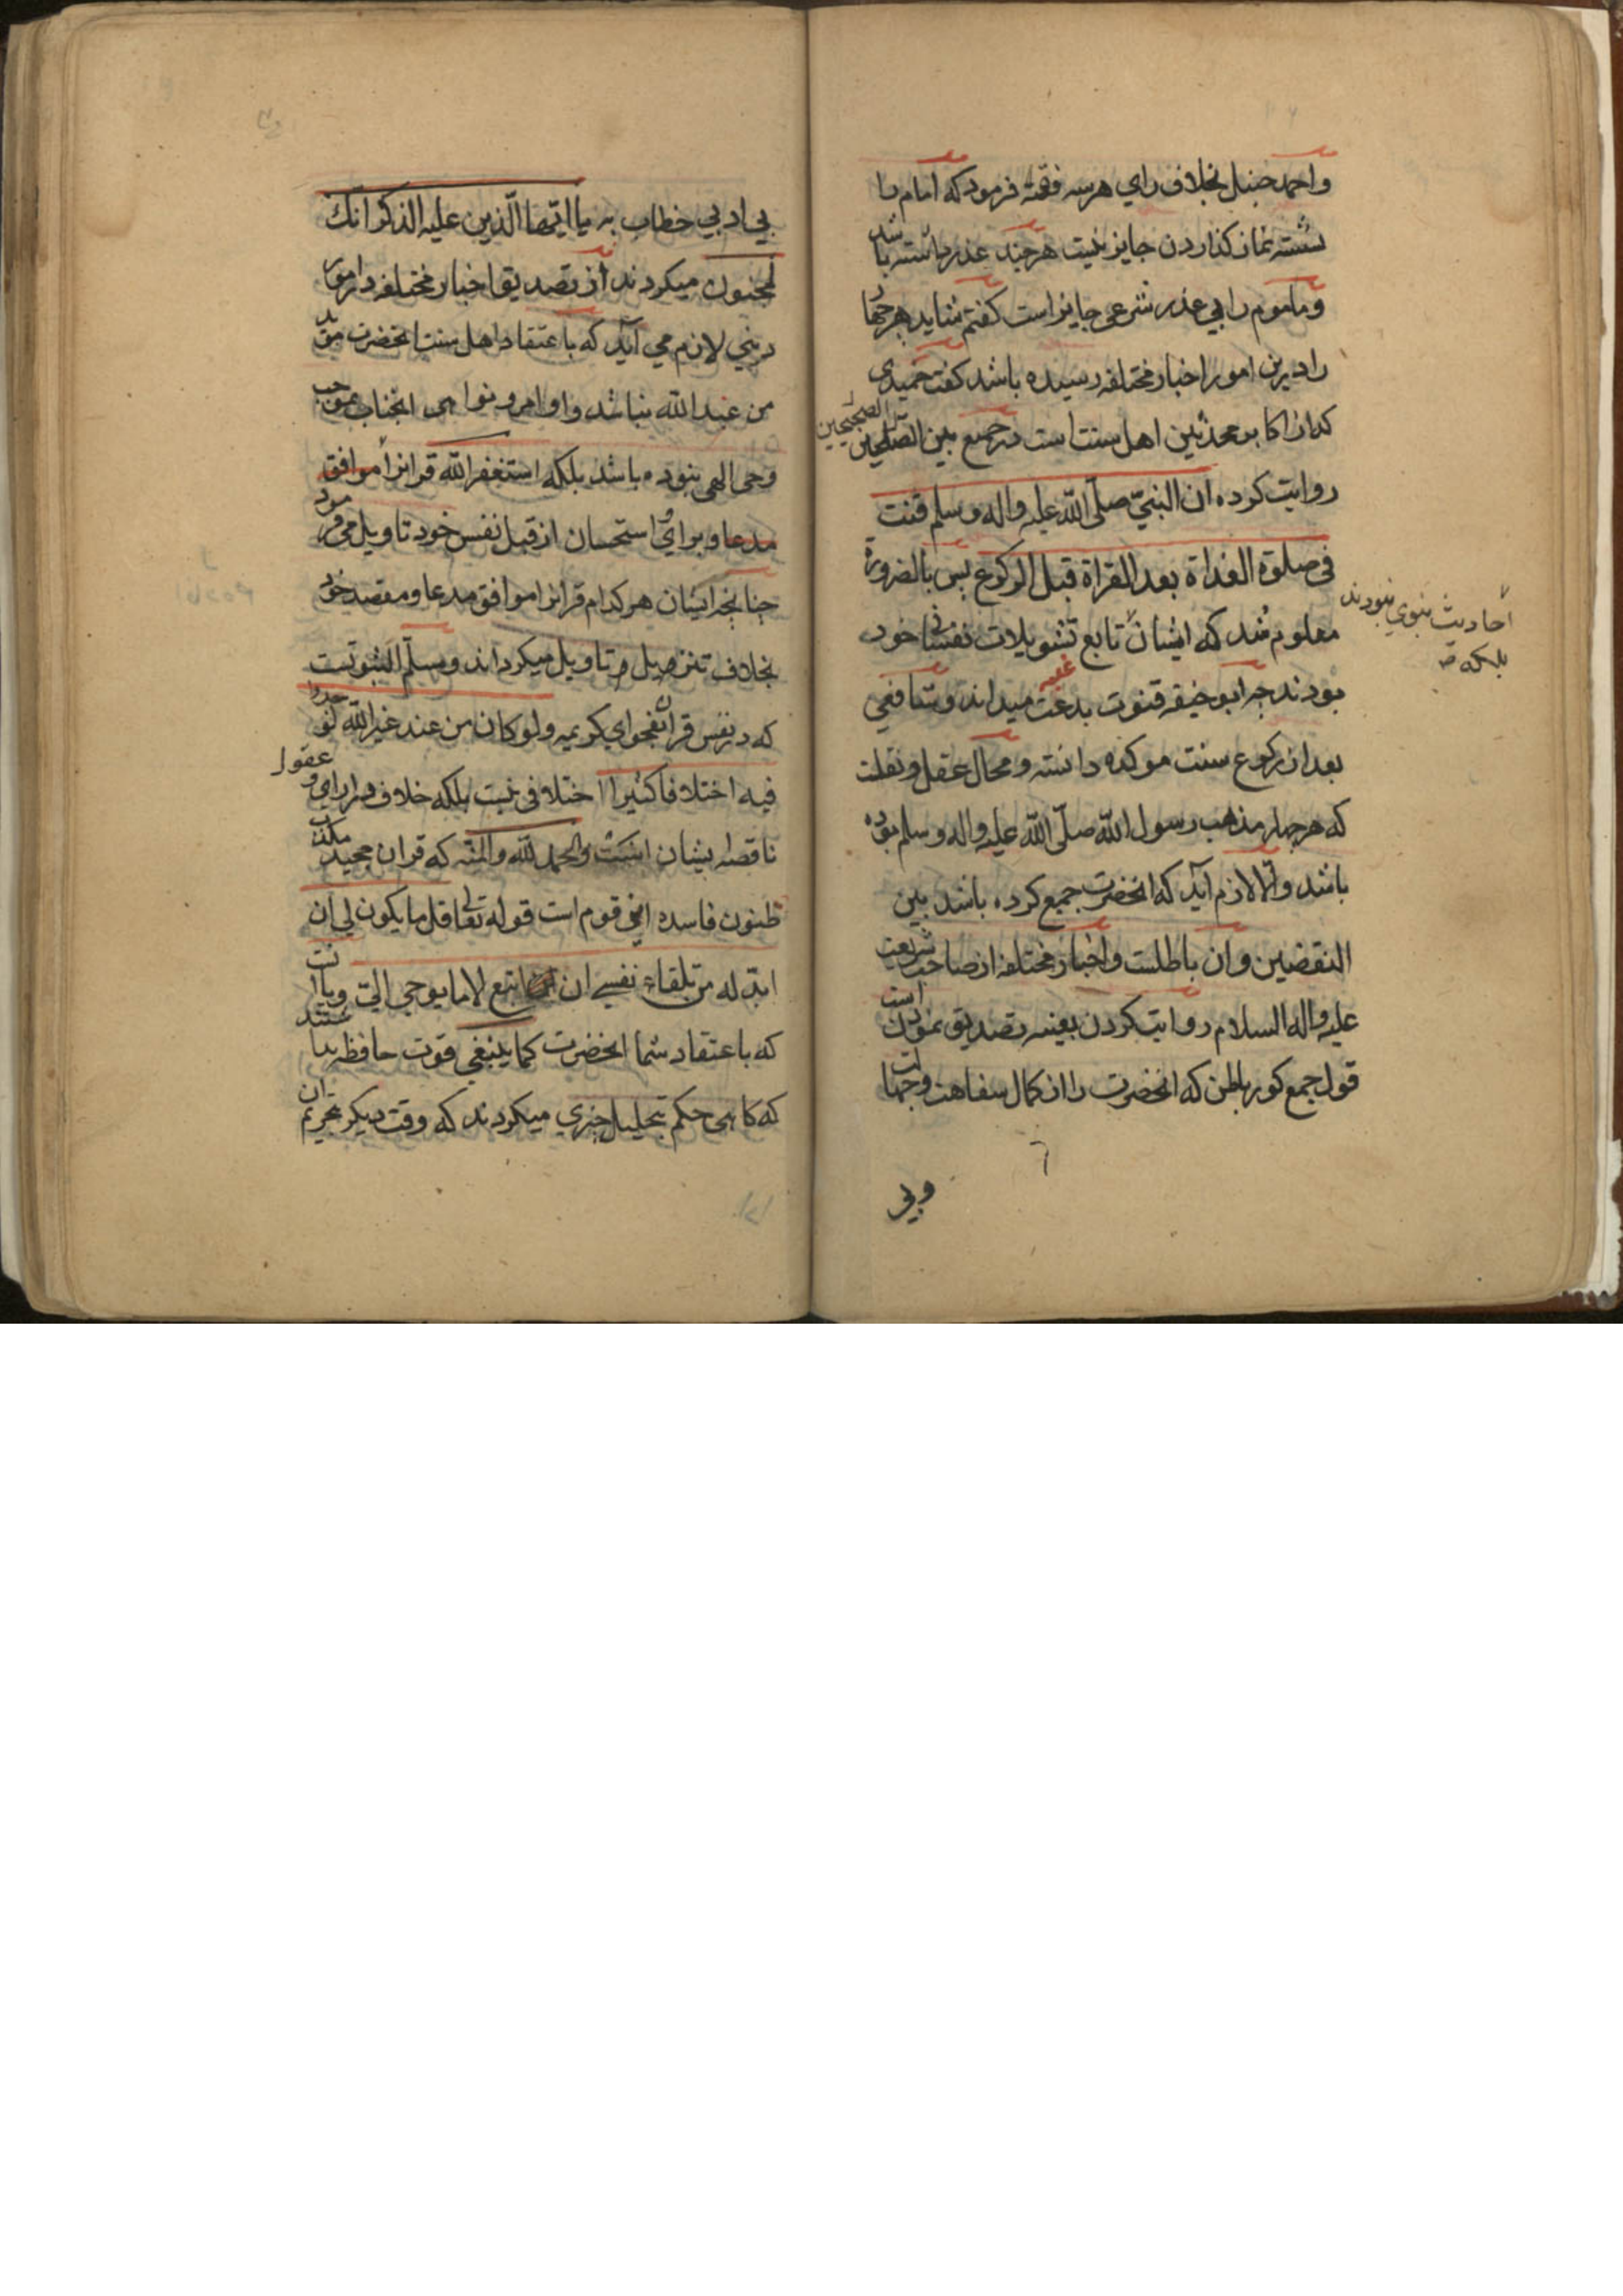 واحمد حنبل بخلاف راي هر سه فقته فرمود که امام را
نشسته نماز کذاردن جایز نیست هرچند عذر داشته باشد
وماموم را بی عذر شرعی جایز است کفتم شاید هر چهار
را درین امور اخبار مختلفه رسیده باشد کفت حمیدی
که از اکابر محدثین اهل سنت است در جمع بین الصحیحین
الصحیحین
روایت کرده ان النبيّ صلّی الله علیه واله وسلم قنت
في صلوة الغداة بعد القراة قبل الرکوع پس بالضرورة
معلوم شد که ایشان تابع تسویلات نفسانی خود
احادیث نبوي نبودند
بلکه صح
بودند چه ابو حنیفه قنوت بدعت میداند وشافعي
بعد از رکوع سنت موکده دانسته و محال عقل و نقلست
که هر چهار مذهب رسول الله صلّی الله علیه واله وسلم بوده
باشد والّا لازم آید که انحضرت جمع کرده باشد بین
النقضین وان باطلست واخبار مختلفه از صاحب شریعت
علیه واله السلام روایت کردن بعینه تصدیق نمودن است
قول جمع کور باطن که انحضرت را از کمال سفاهت وجهالت
وبی
بي ادبي خطاب به یا ایّها الّذين علیه الذکر انّک
لمجنون میکردند از تصدیق اخبار مختلفه در امور
دیني لازم می آید که باعتقاد اهل سنت انحضرت مؤید
من عند الله نباشد واوامر ونواهی انجناب بموجب
وحی الهی نبوده باشد بلکه استغفر الله قرانرا موافق
مدعا وبرای استحسان از قبل نفس خود تاویل می فرمود
چنانچه ایشان هر کدام قرانرا موافق مدعا ومقصد خود
بخلاف تنزیل تاویل میکرده اند ومسلّم الثبوتست
که در نفس قران بفحوای کریمه ولو کان من عند غیر الله لوجدوا
فیه اختلافا کثیرا اختلافی نیست بلکه خلاف در رای و عقول
ناقصه ایشان است والحمد لله والمنّه که قران مجید مکذب
ظنون فاسده انقوم است قوله تعالی قل ما یکون لي ان
ابدّله من تلقاء نفسي ان اتبع الا ما یوحی اليّ ویا انست
که باعتقاد شما انحضرت کما ینبغی قوت حافظه نداشتند
که کاهی حکم بتحلیل چیزي میکردند که وقت دیکر بتحریم ان